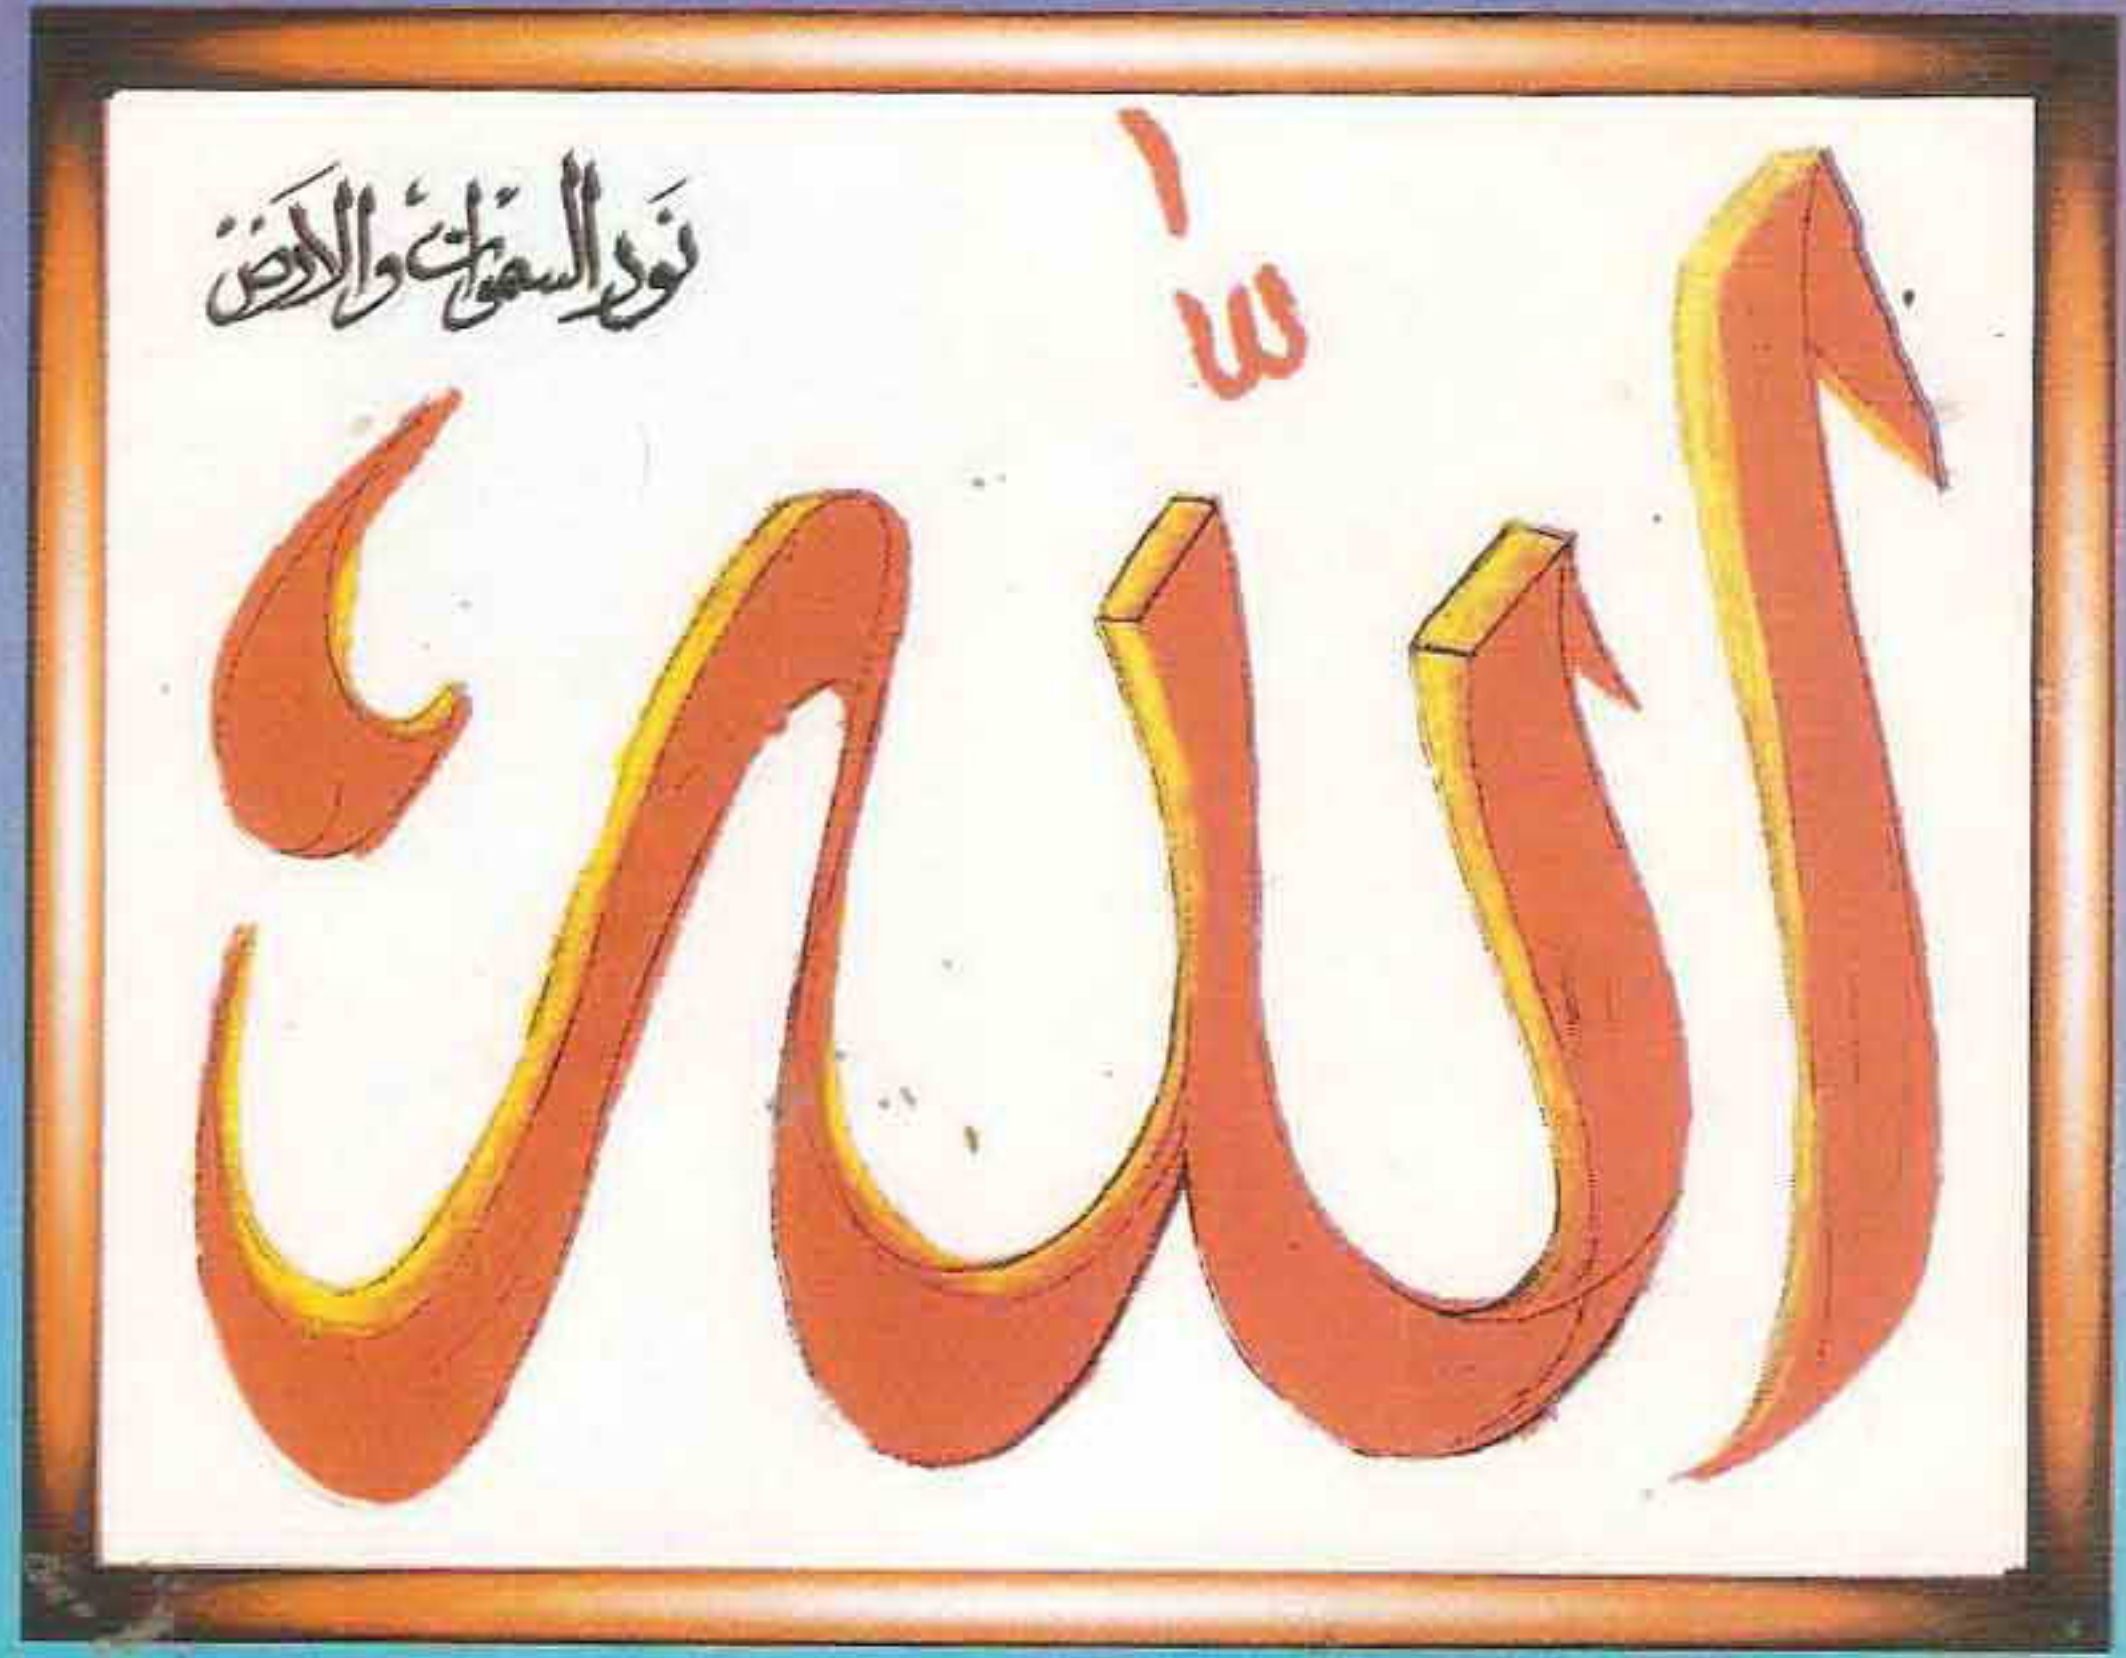 الله
نور السموات والارض